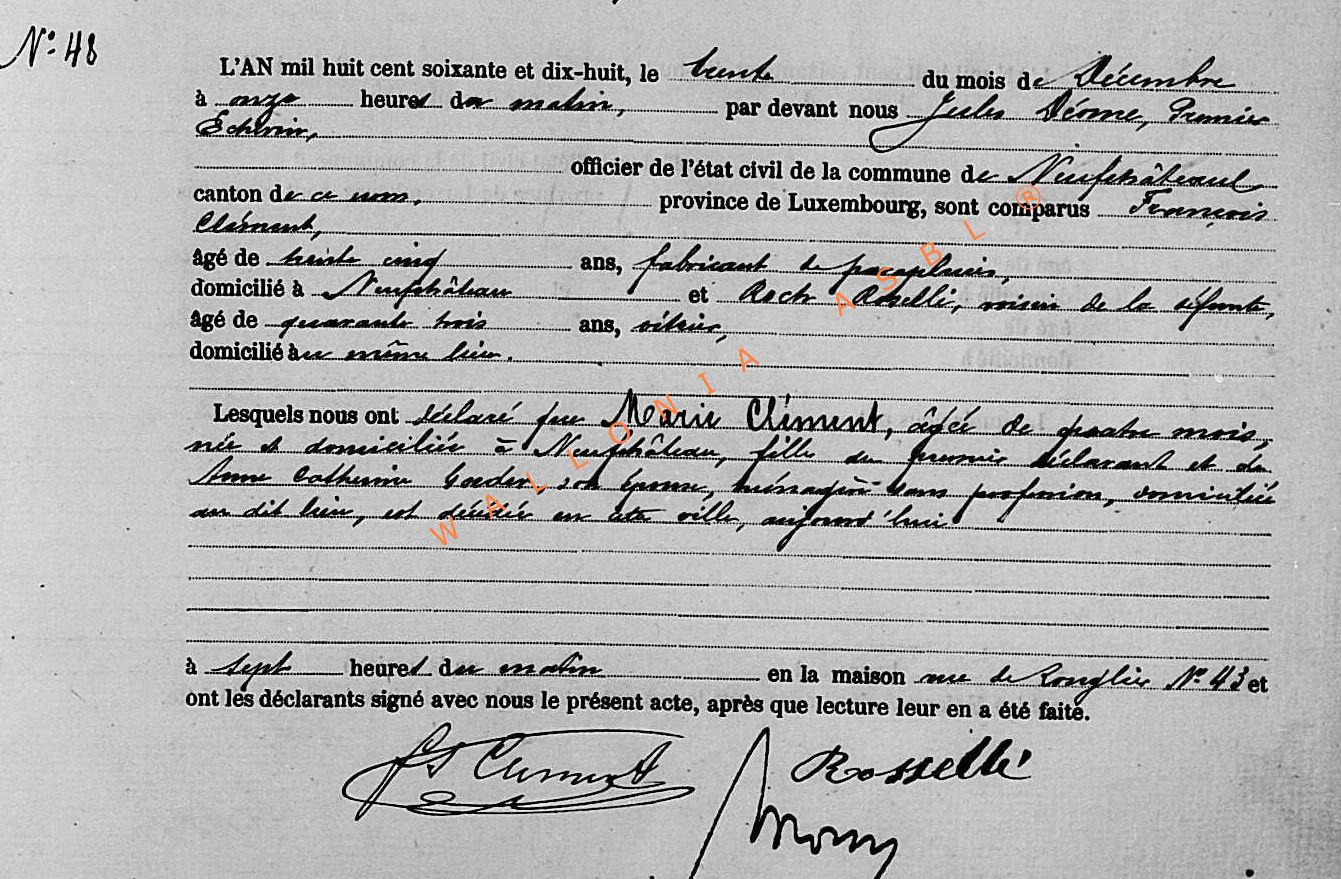 N° 48
L'AN mil huit cent soixante et dix-huit, le trente du mois de Décembre
à onze heures du matin, par devant nous Jules Déome, Premier
Echevin,
officier de l'état civil de la commune de Neufchâteau,
canton de ce nom, province de Luxembourg, sont comparus François
Clément,
âgé de trente cinq ans, fabricant de parapluies,
domicilié à Neufchâteau et Roch Rosselli, voisin de la défunte,
âgé de quarante trois ans, vitrier,
domicilié au même lieu.
Lesquels nous ont déclaré que Marie Clément, âgée de quatre mois,
née et domiciliée à Neufchâteau, fille du premier déclarant et de
Anne Catherine son épouse, ménagère sans profession, domiciliée
au dit lieu, est décédée en cette ville, aujourd'hui
à sept heures du matin en la maison rue de N° 43 et
ont les déclarants signé avec nous le présent acte, après que lecture leur en a été faite.
Clément
Rosselli
WALLONIA ASBL ®